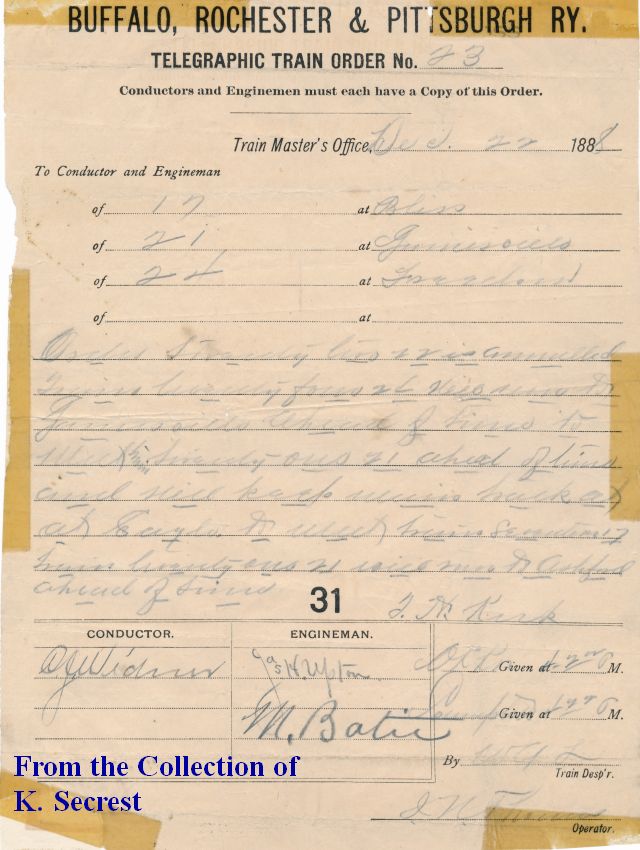 BUFFALO, ROCHESTER & PITTSBURGH RY.
TELEGRAPHIC TRAIN ORDER No. 23
Conductors and Enginemen must each have a Copy of this Order.
Train Master's Office, Dec. 22 1888
To Conductor and Engineman
of 17 at Bliss
of 21 at Gainesville
of 24 at
of at
Order Twenty two 22 is annulled
trains twenty four 24 will run to
Gainesville ahead of time to
meet train twenty one 21 ahead of time
and will keep main track at
at Eagle to meet train Seventeen 17
train twenty one 21 will run to
ahead of time
31
CONDUCTOR.
ENGINEMAN.
Jas H. Upton
Given at M.
M. Batie
Given at M.
By
Train Desp'r.
Operator.
From the Collection of
K. Secrest